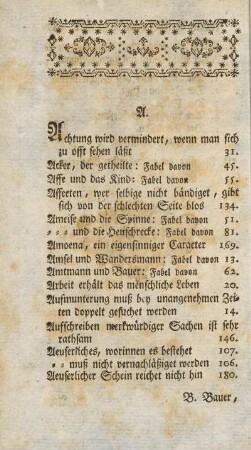 A.
Achtung wird vermindert, wenn man sich
zu offt sehen läßt 31.
Acker, der getheilte: Fabel davon 45.
Affe und das Kind: Fabel davon 55.
Affecten, wer selbige nicht bändiget, gibt
sich von der schlechten Seite blos 134.
Ameise und die Spinne: Fabel davon 51.
⸗ ⸗ ⸗ und die Heuschrecke: Fabel davon 81.
Amoena, ein eigensinniger Caracter 169.
Amsel und Wandersmann: Fabel davon 13.
Amtmann und Bauer: Fabel davon 62.
Arbeit erhält das menschliche Leben 20.
Aufmunterung muß bey unangenehmen Zei⸗
ten doppelt gesuchet werden 14.
Aufschreiben merkwürdiger Sachen ist sehr
rathsam 146.
Aeuserliches, worinnen es bestehet 107.
⸗ ⸗ muß nicht vernachläßiget werden 106.
Aeuserlicher Schein reichet nicht hin 180.
B. Bauer,